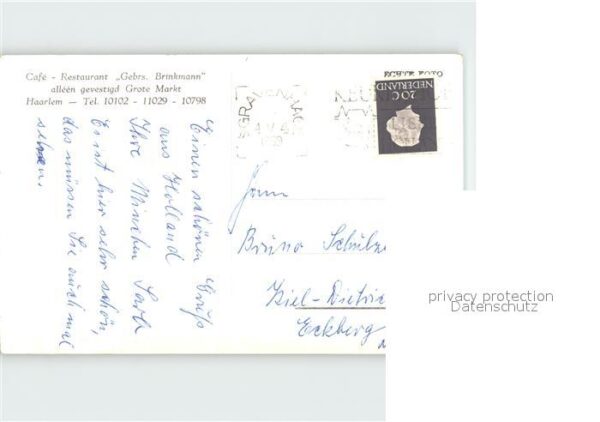 Café - Restaurant „Gebrs. Brinkmann"
alléén gevestigd Grote Markt
Haarlem — Tel. 10102 - 11029 - 10798
Einen schönen Gruß
aus Holland
Ihre
Es ist hier sehr schön,
das müssen Sie auch mal
sehen.
ECHTE FOTO
NEDERLAND
20 C
Bruno
Kiel-Dietric
Eckberg
privacy protection
Datenschutz